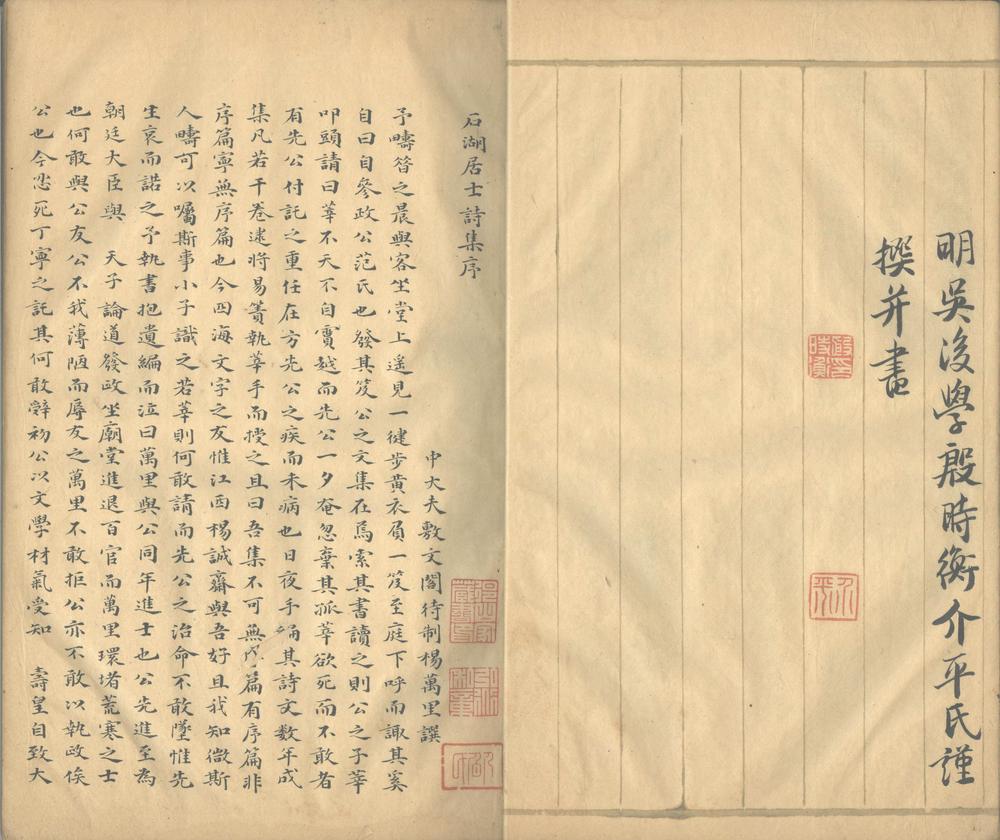 明吳後學殷時衡介平氏謹
撰并書
石湖居士詩集序
中大夫敷文閣待制楊萬里譔
予疇昝之晨與客坐堂上遥見一健步黃衣負一笈至庭下呼而諏其奚
自曰自參政公范氏也發其笈公之文集在焉索其書讀之則公之子莘
叩頭請曰莘不天不自霣越而先公一夕奄忽棄其孤莘欲死而不敢者
有先公付託之重任在方先公之疾而未病也日夜手編其詩文數年成
集凡若干卷逮將易簀執莘手而授之且曰吾集不可無序篇有序篇非
序篇寧無序篇也今四海文字之友惟江西楊誠齋與吾好且我知微斯
人疇可以囑斯事小子識之若莘則何敢請而先公之治命不敢墜惟先
生哀而諾之予執書抱遺編而泣曰萬里與公同年進士也公先進至為
朝廷大臣與 天子論道發政坐廟堂進退百官而萬里環堵荒寒之士
也何敢與公友公不我薄陋而辱友之萬里不敢拒公亦不敢以執政俟
公也今忍死丁寧之託其何敢辭初公以文學材氣受知 壽皇自致大